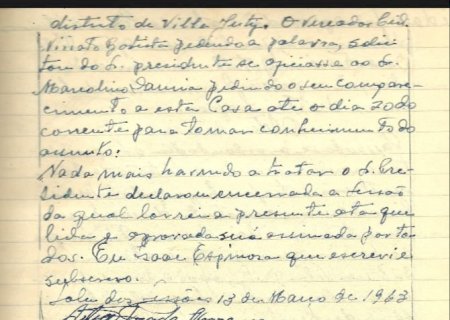 distrito de Villa Justy. O vereador Cid.
Viriato Batista pedindo a palavra, solici
tou do S. presidente se oficiasse ao Sr.
Marcolino pedindo o seu compare-
cimento a esta Casa até o dia 20 do
corrente para tomar conhecimento do
assunto:
Nada mais havendo a tratar o S. Pre
sidente declarou encerrada a Sessão
da qual lavrei a presente ata que
lida e aprovada será assinada por to
dos. Eu Isaac Espinosa que escrevi e
subscrevo.
Sala das sessões 13 de Março de 1963